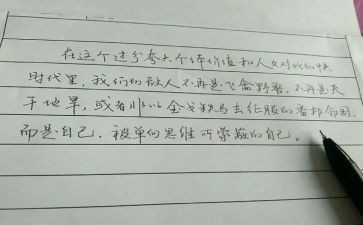 在这个过分夸大个体价值和人文对比的快
时代里，我们的敌人不再是飞禽野兽，不再是天
干地旱，或者非以金戈铁马去征服的番邦邻国，
而是自己，被单的思维所蒙蔽的自己。